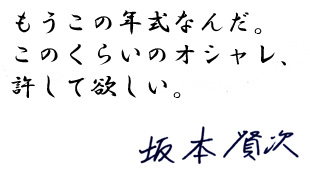 もうこの年式なんだ。
このくらいのオシャレ、
許して欲しい。
坂本賢次